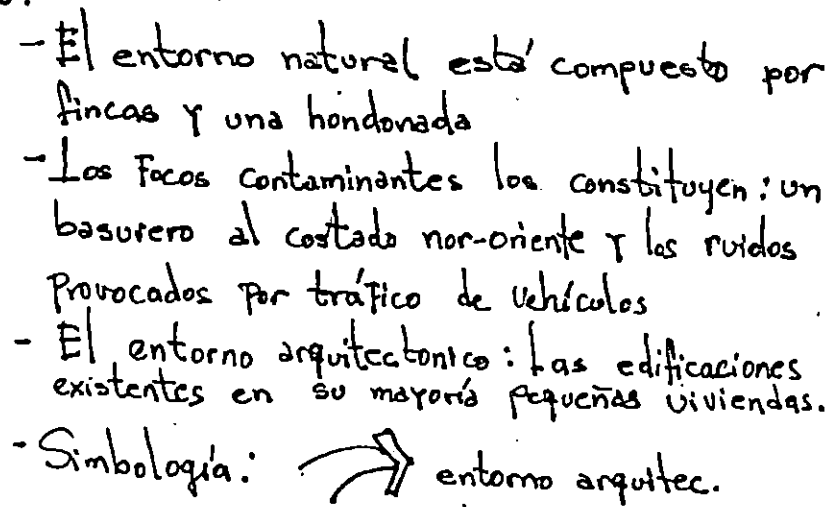 - El entorno natural está compuesto por
fincas y una hondonada
- Los Focos contaminantes los constituyen: un
basurero al costado nor-oriente y los ruidos
Provocados Por tráfico de vehículos
- El entorno arquitectonico: Las edificaciones
existentes en su mayoría pequeñas viviendas.
- Simbología: entorno arquitec.